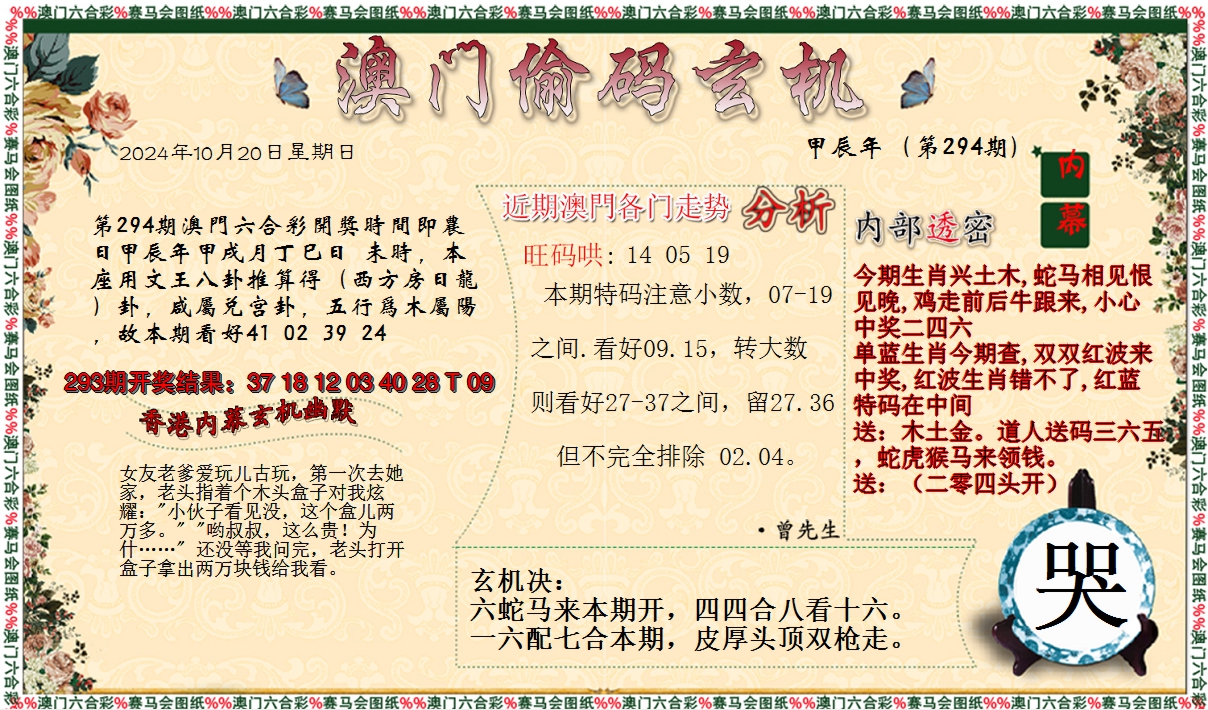 %%澳门六合彩%赛马会图纸%%澳门六合彩%赛马会图纸%%澳门六合彩%赛马会图纸%%澳门六合彩%赛马会图纸%%澳门六合彩%赛马会图纸%%澳门六合彩%赛马会图纸%%澳门六合彩%赛马会图纸%%
澳门偷码玄机
2024年10月20日星期日
甲辰年（第294期）
第294期澳門六合彩開獎時間即農
日甲辰年甲戌月丁巳日 未時，本
座用文王八卦推算得（西方房日龍
）卦，咸屬兌宮卦，五行爲木屬陽
，故本期看好41 02 39 24
293期开奖结果：37 18 12 03 40 28 T 09
香港内幕玄机幽默
女友老爹爱玩儿古玩，第一次去她
家，老头指着个木头盒子对我炫
耀："小伙子看见没，这个盒儿两
万多。" "哟叔叔，这么贵！为
什……" 还没等我问完，老头打开
盒子拿出两万块钱给我看。
近期澳門各门走势 分析
旺码哄: 14 05 19
本期特码注意小数，07-19
之间.看好09.15，转大数
则看好27-37之间，留27.36
但不完全排除 02.04。
·曾先生
玄机决：
六蛇马来本期开，四四合八看十六。
一六配七合本期，皮厚头顶双枪走。
内幕
内部透密
今期生肖兴土木,蛇马相见恨
见晚,鸡走前后牛跟来,小心
中奖二四六
单蓝生肖今期查,双双红波来
中奖,红波生肖错不了,红蓝
特码在中间
送：木土金。道人送码三六五
，蛇虎猴马来领钱。
送：（二零四头开）
哭
%%澳门六合彩%赛马会图纸%%澳门六合彩%赛马会图纸%%澳门六合彩%赛马会图纸%%澳门六合彩%赛马会图纸%%澳门六合彩%赛马会图纸%%澳门六合彩%赛马会图纸%%澳门六合彩%赛马会图纸%%